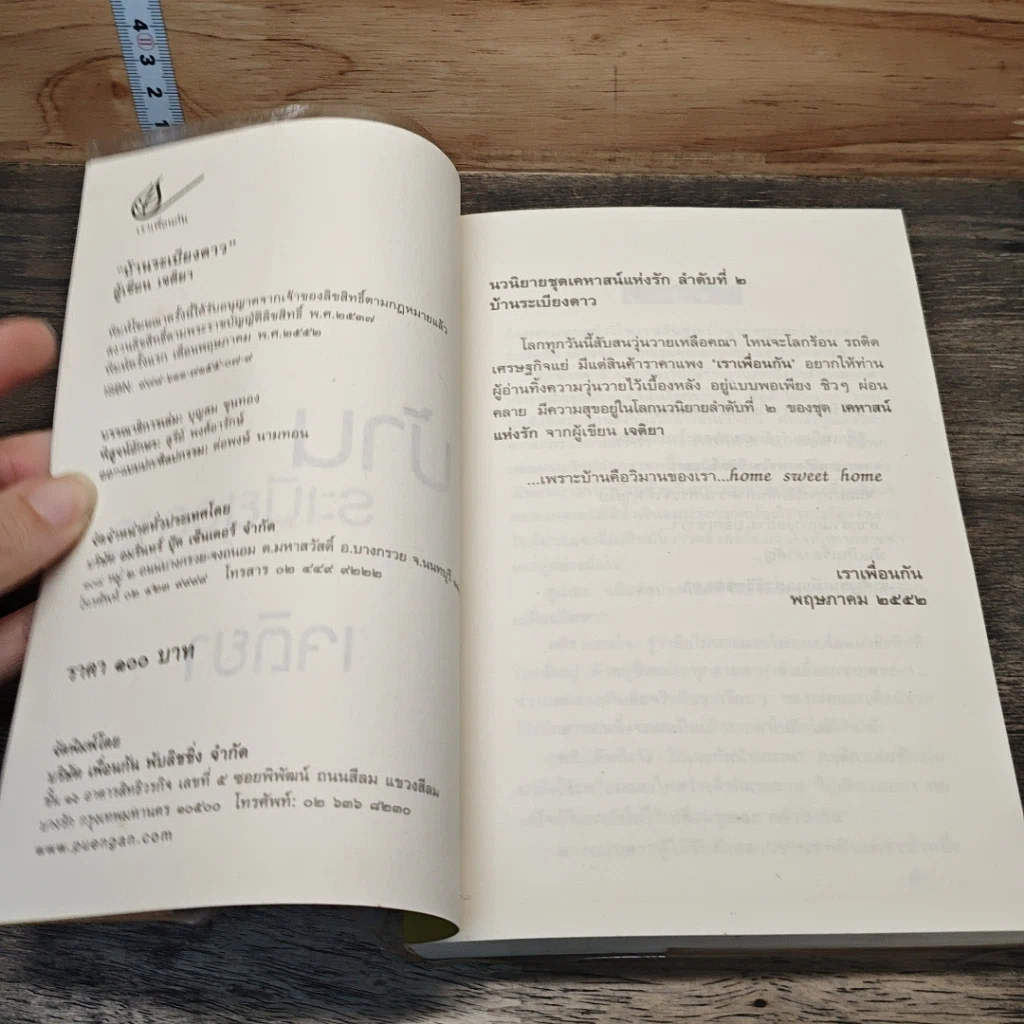 4
3
2
1
เราเพื่อนกัน
"บ้านระเบียงดาว"
ผู้เขียน เจติยา
พิมพ์โฆษณาครั้งนี้ได้รับอนุญาตจากเจ้าของลิขสิทธิ์ตามกฎหมายแล้ว
สงวนลิขสิทธิ์ตามพระราชบัญญัติลิขสิทธิ์ พ.ศ.๒๕๓๗
พิมพ์ครั้งแรก เดือนพฤษภาคม พ.ศ.๒๕๕๒
ISBN:
บรรณาธิการเล่ม: บุญสม ชูนทอง
พิสูจน์อักษร: สุรีย์ พงศ์อารักษ์
ออกแบบปกศิลปกรรม: ต่อพงษ์ นามทอน
จัดจำหน่ายทั่วประเทศโดย
บริษัท อมรินทร์ บุ๊ค เซ็นเตอร์ จำกัด
๑๐๘ หมู่ ๒ ถนนบางกรวย-จงถนอม ต.มหาสวัสดิ์ อ.บางกรวย จ.นนทบุรี
โทรศัพท์ ๐๒ ๔๒๓ ๙๙๙๙ โทรสาร ๐๒ ๔๔๙ ๙๒๒๒
ราคา ๑๐๐ บาท
จัดพิมพ์โดย
บริษัท เพื่อนกัน พับลิชชิ่ง จำกัด
ชั้น ๑๖ อาคารสิทธิวรกิจ เลขที่ ๕ ซอยพิพัฒน์ ถนนสีลม แขวงสีลม
บางรัก กรุงเทพมหานคร ๑๐๕๐๐ โทรศัพท์: ๐๒ ๖๓๖ ๘๒๓๐
www.puengan.com
นวนิยายชุดเคหาสน์แห่งรัก ลำดับที่ ๒
บ้านระเบียงดาว
โลกทุกวันนี้สับสนวุ่นวายเหลือคณา ไหนจะโลกร้อน รถติด
เศรษฐกิจแย่ มีแต่สินค้าราคาแพง ‘เราเพื่อนกัน’ อยากให้ท่าน
ผู้อ่านทิ้งความวุ่นวายไว้เบื้องหลัง อยู่แบบพอเพียง ชิวๆ ผ่อน
คลาย มีความสุขอยู่ในโลกนวนิยายลำดับที่ ๒ ของชุด เคหาสน์
แห่งรัก จากผู้เขียน เจติยา
...เพราะบ้านคือวิมานของเรา...home sweet home
เราเพื่อนกัน
พฤษภาคม ๒๕๕๒